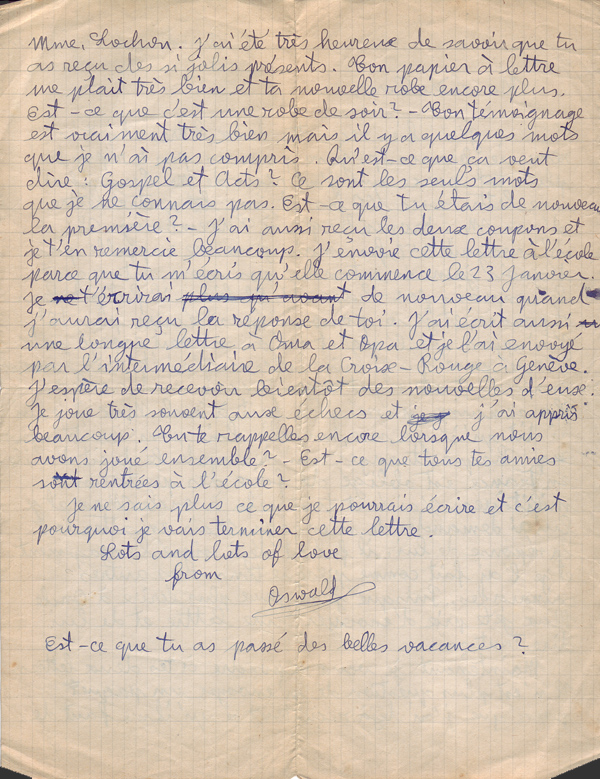 Mme, Lochon. J'ai été très heureux de savoir que tu
as reçu des si jolis présents. Ton papier à lettre
me plait très bien et ta nouvelle robe encore plus.
Est-ce que c'est une robe de soir? - Ton témoignage
est vraiment très bien mais il y a quelques mots
que je n'ai pas compris. Qu'est-ce que ça veut
dire: Gospel et Acts? Ce sont les seuls mots
que je ne connais pas. Est-ce que tu étais de nouveau
la première? - J'ai aussi reçu les deux coupons et
je t'en remercie beaucoup. J'envoie cette lettre à l'école
parce que tu m'écris qu'elle commence le 23 Janvier.
Je ne t'écrirai plus qu'avant de nouveau quand
j'aurai reçu la réponse de toi. J'ai écrit aussi
une longue lettre à Oma et Opa et je l'ai envoyé
par l'intermédiaire de la Croix-Rouge à Genève.
J'espère de recevoir bientôt des nouvelles d'eux.
Je joue très souvent aux échecs et j'ai appris
beaucoup. Tu te rappelles encore lorsque nous
avons joué ensemble? - Est-ce que tous tes amies
sont rentrées à l'école?
Je ne sais plus ce que je pourrais écrire et c'est
pourquoi je vais terminer cette lettre.
Lots and lots of love
from
Oswald
Est-ce que tu as passé des belles vacances?